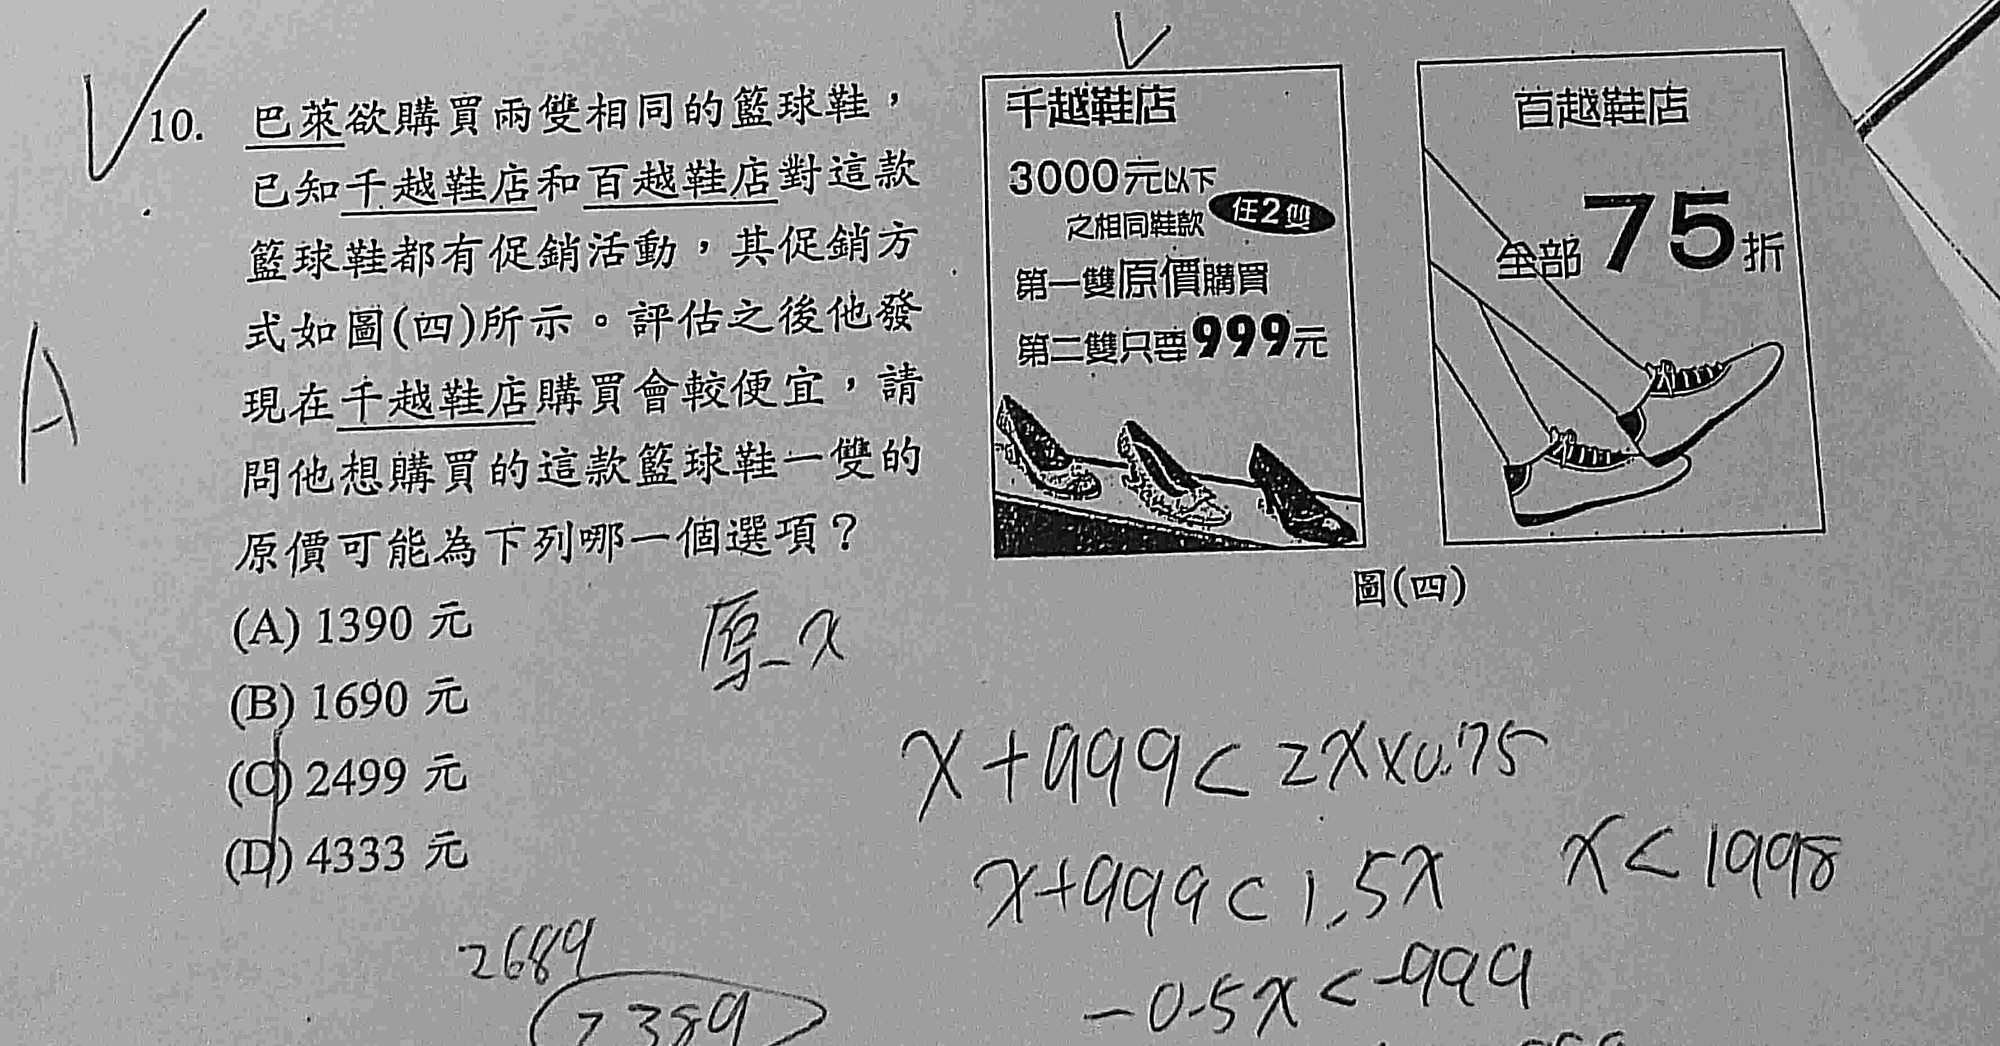 10. 巴萊欲購買兩雙相同的籃球鞋，
已知千越鞋店和百越鞋店對這款
籃球鞋都有促銷活動，其促銷方
式如圖(四)所示。評估之後他發
現在千越鞋店購買會較便宜，請
問他想購買的這款籃球鞋一雙的
原價可能為下列哪一個選項？
(A) 1390 元
(B) 1690 元
(C) 2499 元
(D) 4333 元
千越鞋店
3000元以下
之相同鞋款 任2雙
第一雙原價購買
第二雙只要999元
百越鞋店
全部75折
圖(四)
A
原 x
x+999<2x×0.75
x+999<1.5x
x<1998
-0.5x<-999
2689
2389